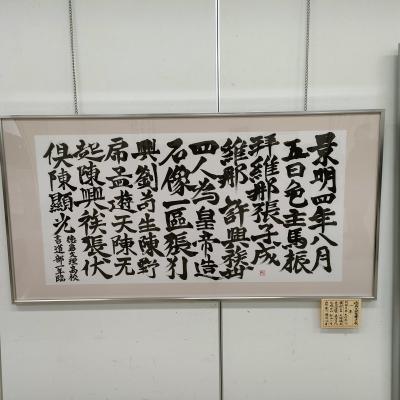 景明四年八月
五日邑主馬振
拜維那張子成
維那許興族卅
四人為皇帝造
石像一區張引
興劉苟生陳野
虎孟遊天陳天
起陳興族張伏
俱陳顯光
徳島文理高校
書道部一年臨